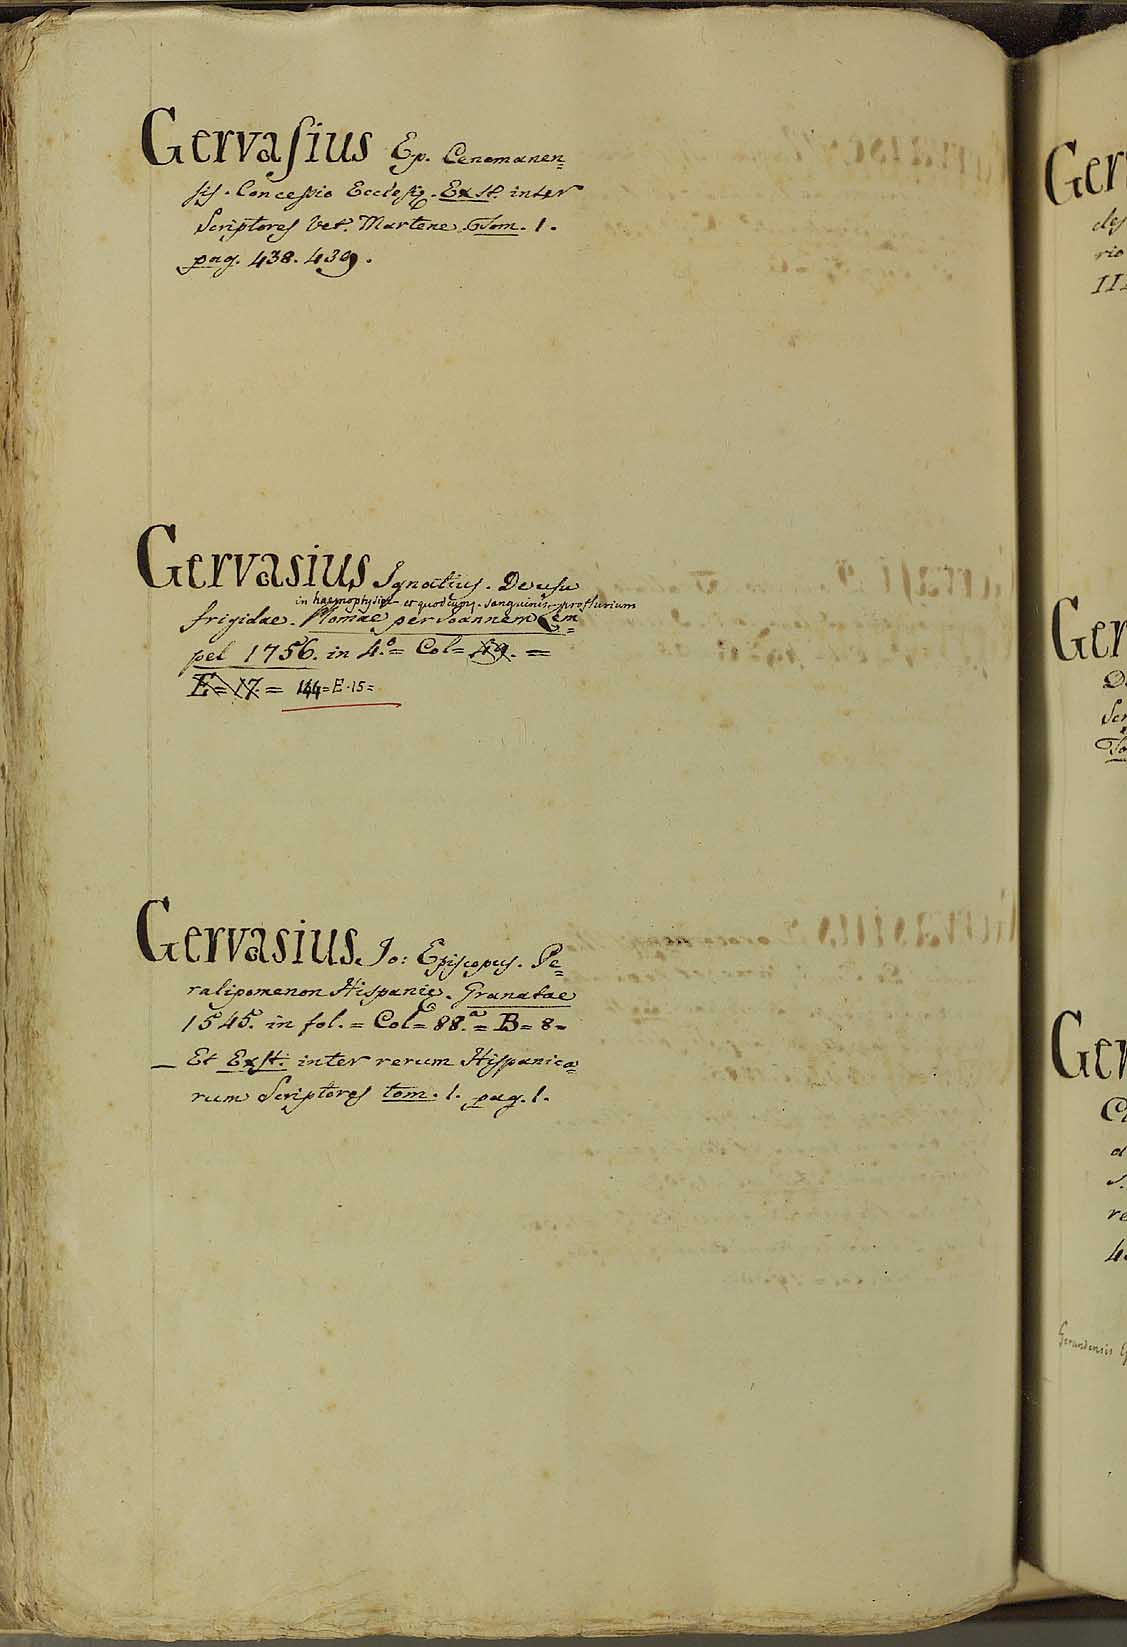 Gervasius Ep. Cenomanen=
sis. Concessio Ecclesię. Exst. inter
Scriptores Vet. Martene Tom. 1.
pag. 438. 439.
Gervasius Ignatius. De usu
in haemophysi et quocumq. sanguinis profluvium
frigidae. Romae per Joannem Zem=
pel 1756. in 4.º = Col= =
E=17= = 144=E·15=
Gervasius Jo: Episcopus. Pe=
ralipomenon Hispanię. Granatae
1545. in fol. = Col= 88.ª = B= 8=
_ Et Exst. inter rerum Hispanica=
rum Scriptores tom. 1. pag. 1.
Ger
des
rio
III
Ger
De
Scr
To
Ger
d
S.
re
4
Gerundensis